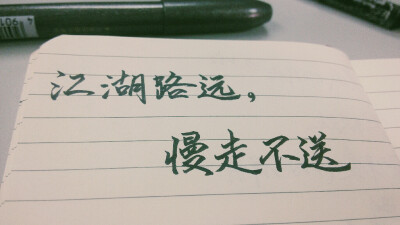 江湖路远，
慢走不送